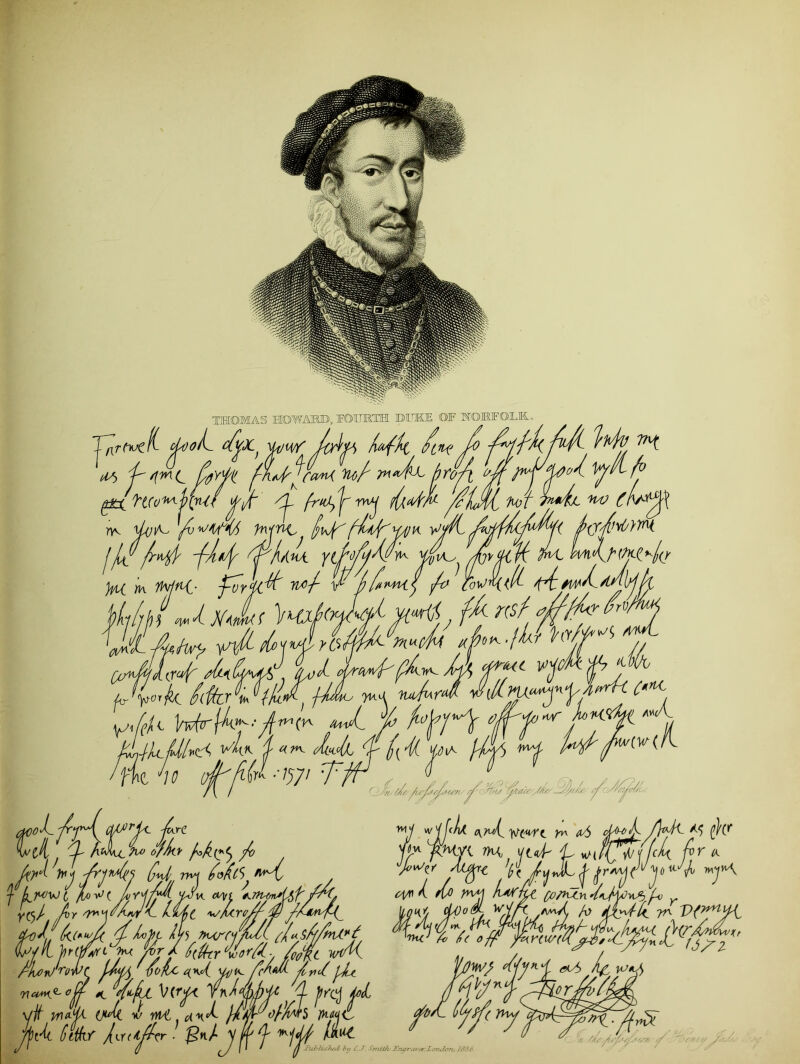 THOMAS HOWARD, FOURTH DUKE OF NORFOLK.
Farewell good dyx, your servys hathe bene so faythefull unto me
as I ame sorye that I cane not make profe off my good wyll to
recompence yit I trust my deathe schall not make no change
in you towards myne, but that you wyll faythefullye performe
the trust that I have reposyd in you, forgett me and remember
me in myne. Forgett not to councell and advyse
phylyps and Nannes unexperyencyd yeares, the rest off ther brothers
and systers well doyng restythe muche upon ther vertuws and
consyderat dealyngs, god grant them hys grace wyche ys able
to worke better in them, than my naturall well meanyng harte cane
wysche unto them: Amen and so hopyng off your honestye and
faythefullnes when I am deade I bid you thys my last farewell
the 10 off febru: 1571 T H
In the possession of His Grace the Duke of Norfolk.
good frynd george fare
well, I have no other tokens to
send my fryndes but my bokes, and
I knowe howe soryfull you are amongst the
rest, for my hard happe wheroff I thanke
god because I hope hys mercyfull chastysment
wyll prepare me for a better world, looke well
thowrowe thys boke and you schall find the
name off a duke verye unhappye. I prey god
ytt maye ende w me, and that others maye
spede better hereafter. But yff I myght have
my wysche and weare in as good state as ever
you knewe me, yeat I will wysche for a
lower degre be frynd I praye you to myne
and do my hartie comendations to
your good wyfe and to gentle m Dennye
I dye in the faythe that you have ever knowne
me to be off farewell good frynd 1572
Yours dyyng as he was
lyvyng Norfolke
god blysse my god sone. Ame
In the possession of Henry Jadis Esqr.
Published by C.J. Smith Engraver London, 1836